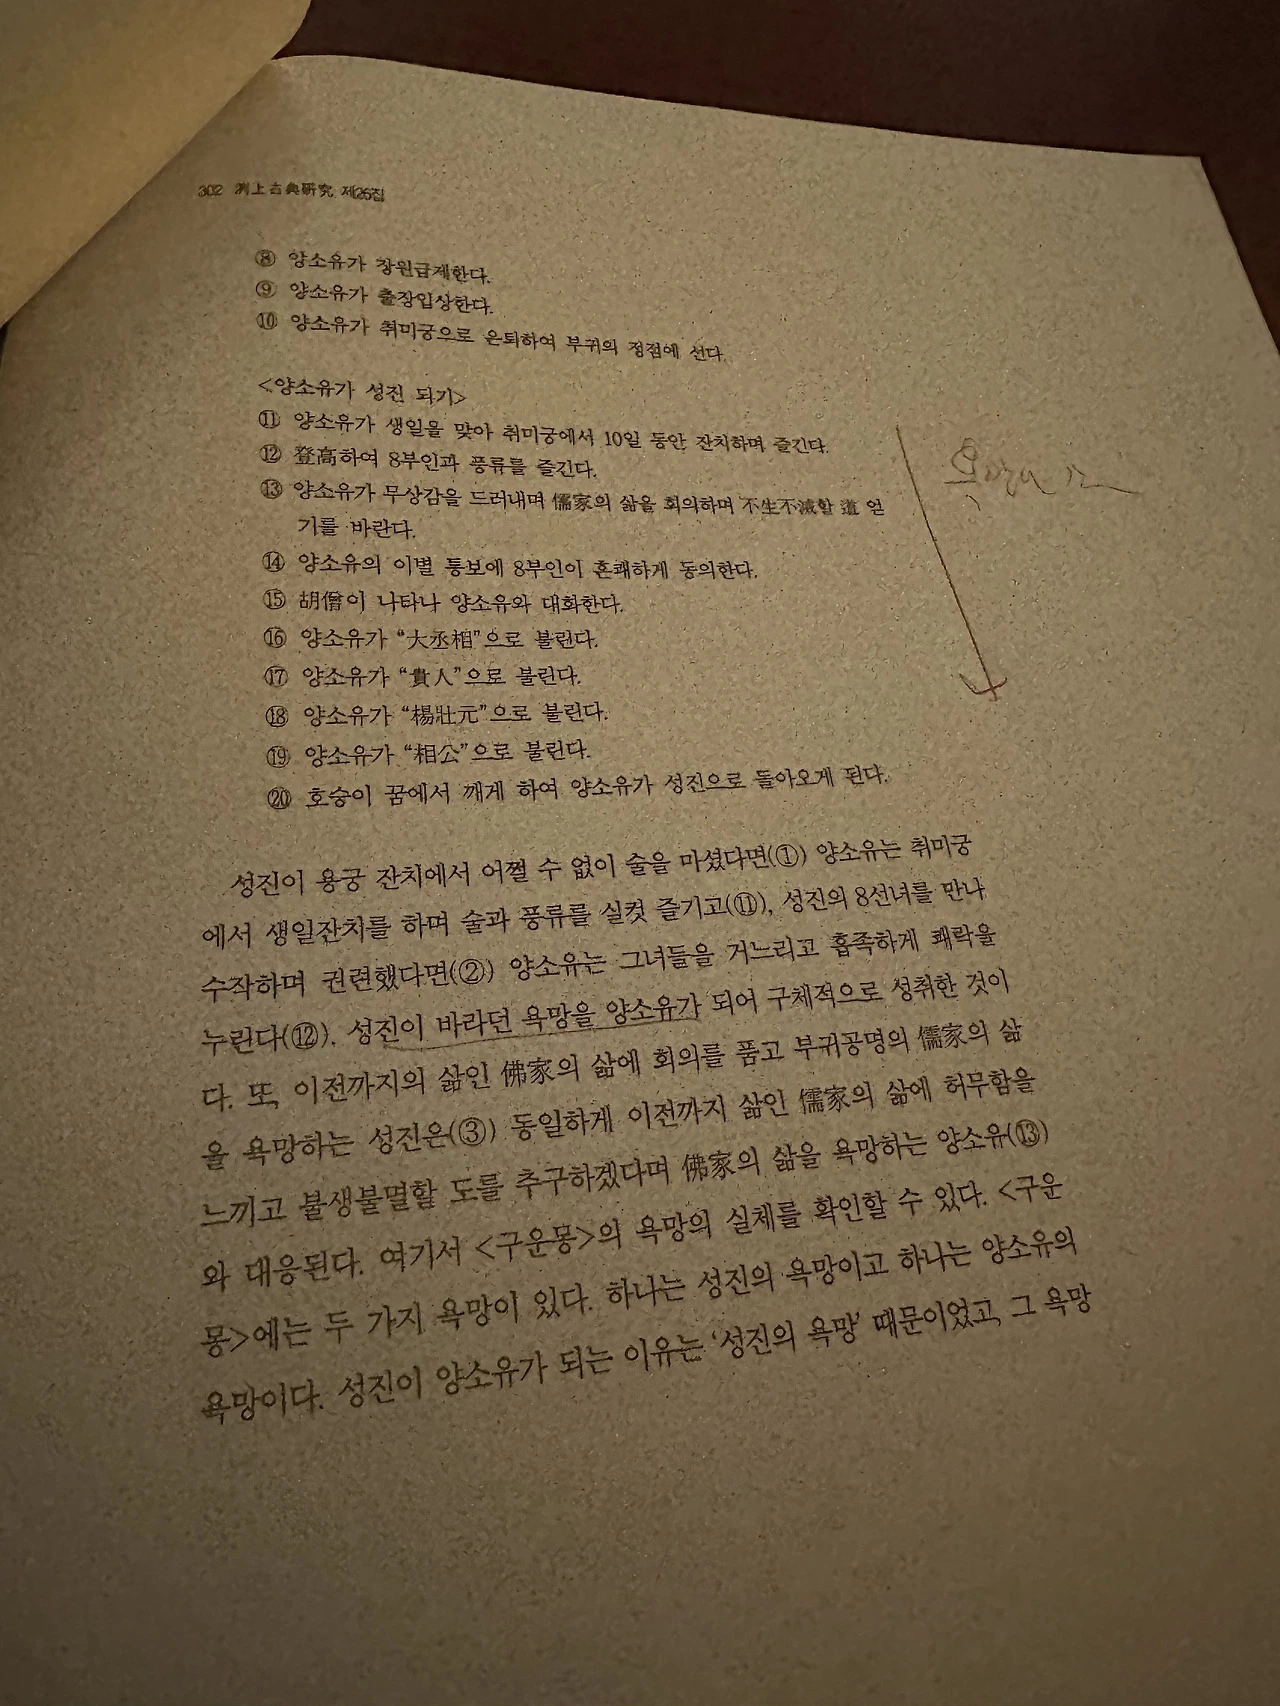 302 洌上古典研究 제26집
⑧ 양소유가 장원급제한다.
⑨ 양소유가 출장입상한다.
⑩ 양소유가 취미궁으로 은퇴하여 부귀의 정점에 선다.
<양소유가 성진 되기>
⑪ 양소유가 생일을 맞아 취미궁에서 10일 동안 잔치하며 즐긴다.
⑫ 登高하여 8부인과 풍류를 즐긴다.
⑬ 양소유가 무상감을 드러내며 儒家의 삶을 회의하며 不生不滅할 道 얻
기를 바란다.
⑭ 양소유의 이별 통보에 8부인이 흔쾌하게 동의한다.
⑮ 胡僧이 나타나 양소유와 대화한다.
⑯ 양소유가 “大丞相”으로 불린다.
⑰ 양소유가 “貴人”으로 불린다.
⑱ 양소유가 “楊壯元”으로 불린다.
⑲ 양소유가 “相公”으로 불린다.
⑳ 호승이 꿈에서 깨게 하여 양소유가 성진으로 돌아오게 된다.
성진이 용궁 잔치에서 어쩔 수 없이 술을 마셨다면(①) 양소유는 취미궁
에서 생일잔치를 하며 술과 풍류를 실컷 즐기고(⑪), 성진의 8선녀를 만나
수작하며 권련했다면(②) 양소유는 그녀들을 거느리고 흡족하게 쾌락을
누린다(⑫). 성진이 바라던 욕망을 양소유가 되어 구체적으로 성취한 것이
다. 또, 이전까지의 삶인 佛家의 삶에 회의를 품고 부귀공명의 儒家의 삶
을 욕망하는 성진은(③) 동일하게 이전까지 삶인 儒家의 삶에 허무함을
느끼고 불생불멸할 도를 추구하겠다며 佛家의 삶을 욕망하는 양소유(⑬)
와 대응된다. 여기서 <구운몽>의 욕망의 실체를 확인할 수 있다. <구운
몽>에는 두 가지 욕망이 있다. 하나는 성진의 욕망이고 하나는 양소유의
욕망이다. 성진이 양소유가 되는 이유는 ‘성진의 욕망’ 때문이었고, 그 욕망